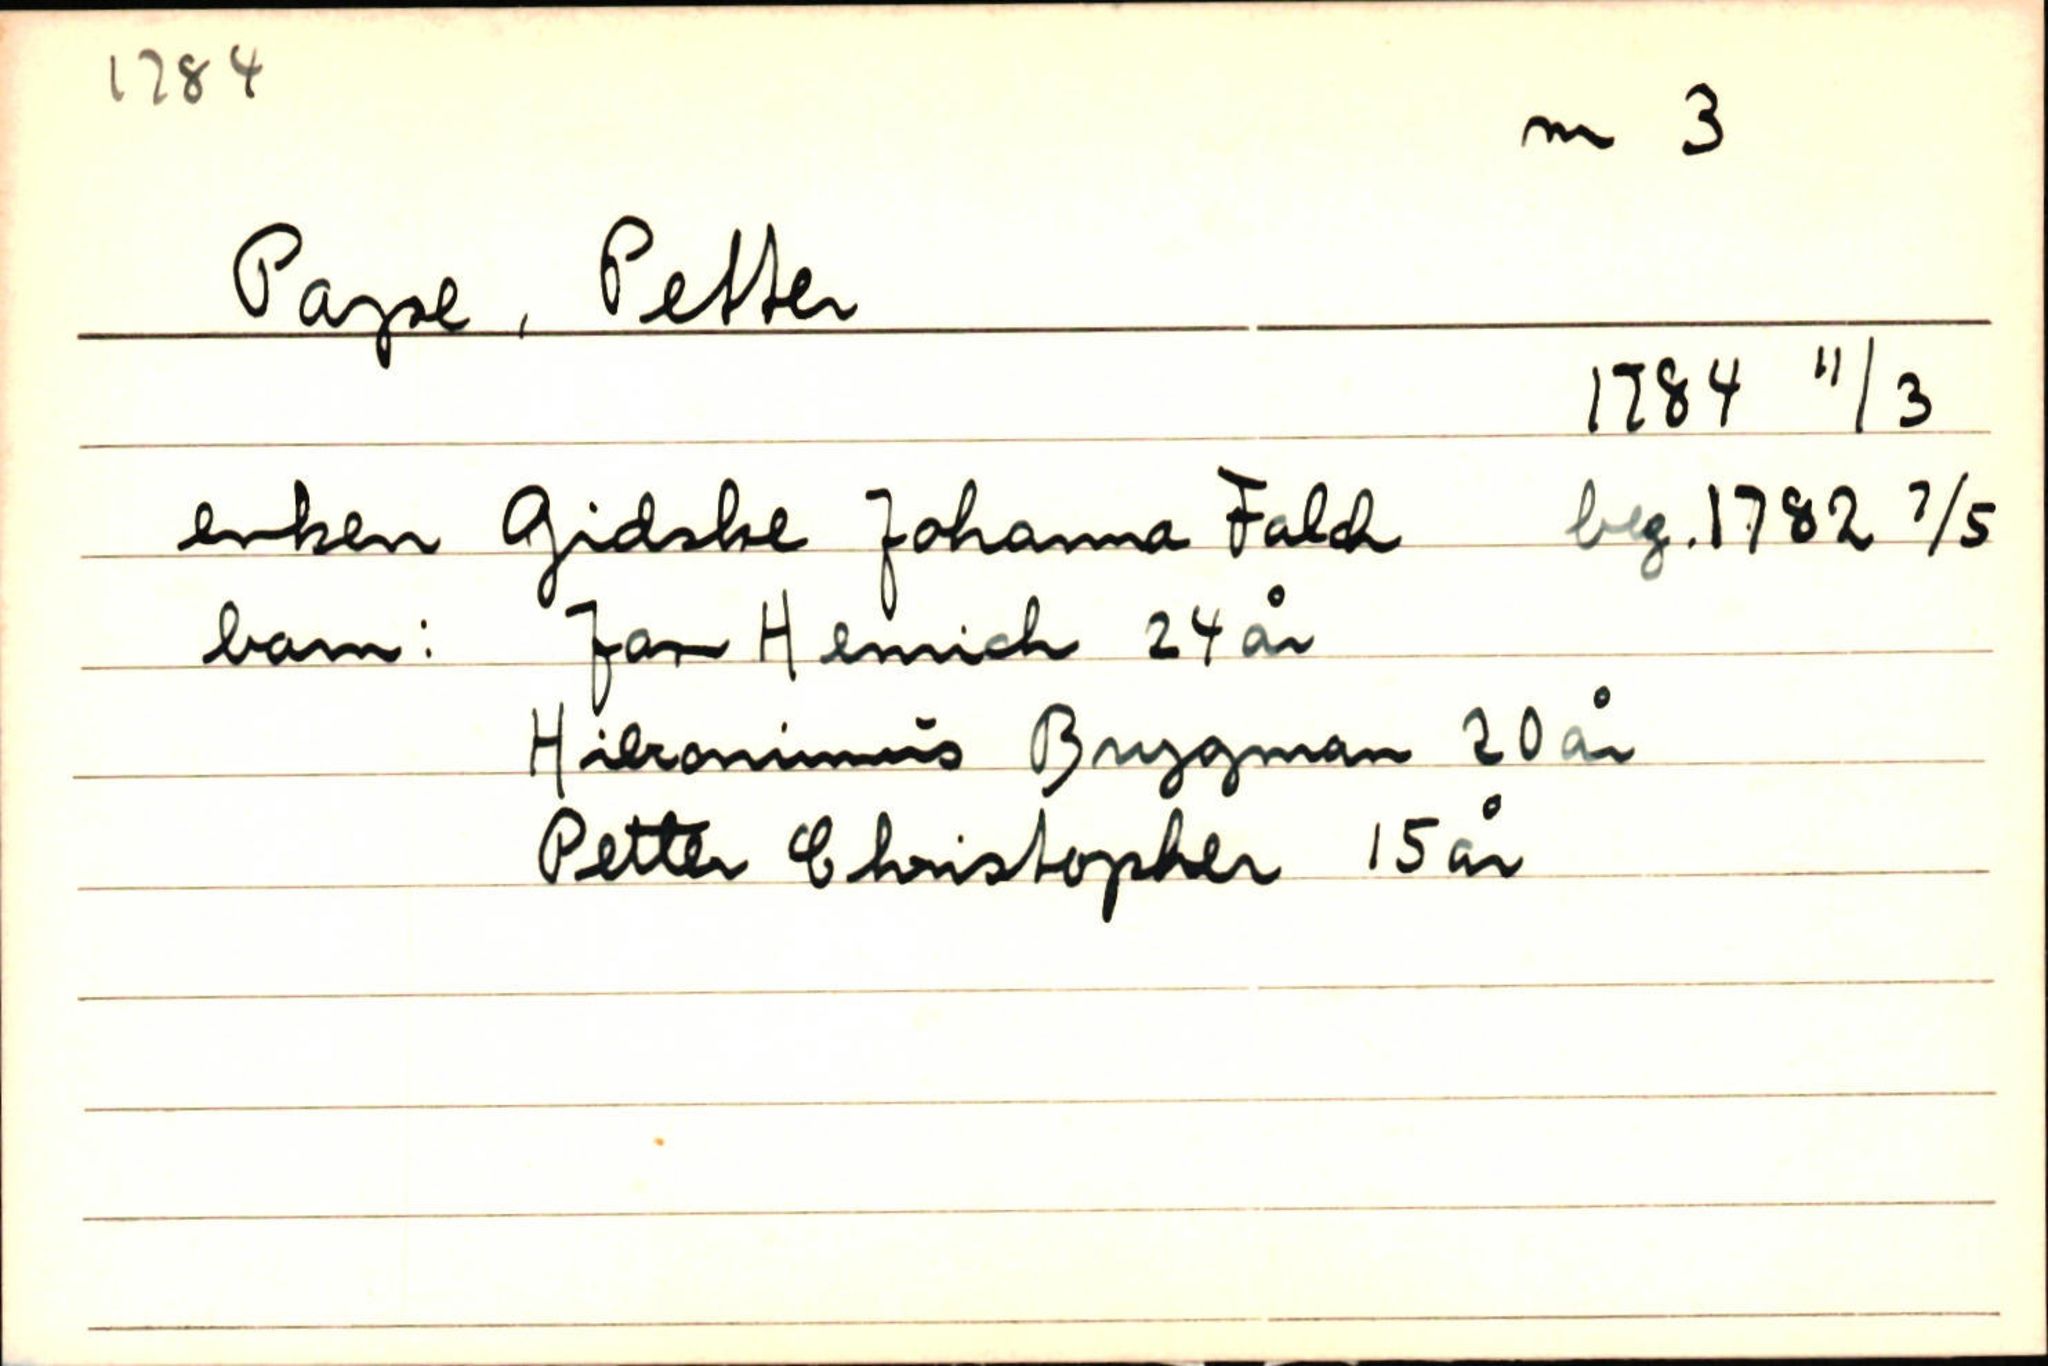 1784
nr 3
Payse, Petter
1784 11/3
enken Gidske Johanna Falch beg. 1782 7/5
barn: Jan Henrich 24 år
Hieronimus Brygman 20 år
Petter Christopher 15 år